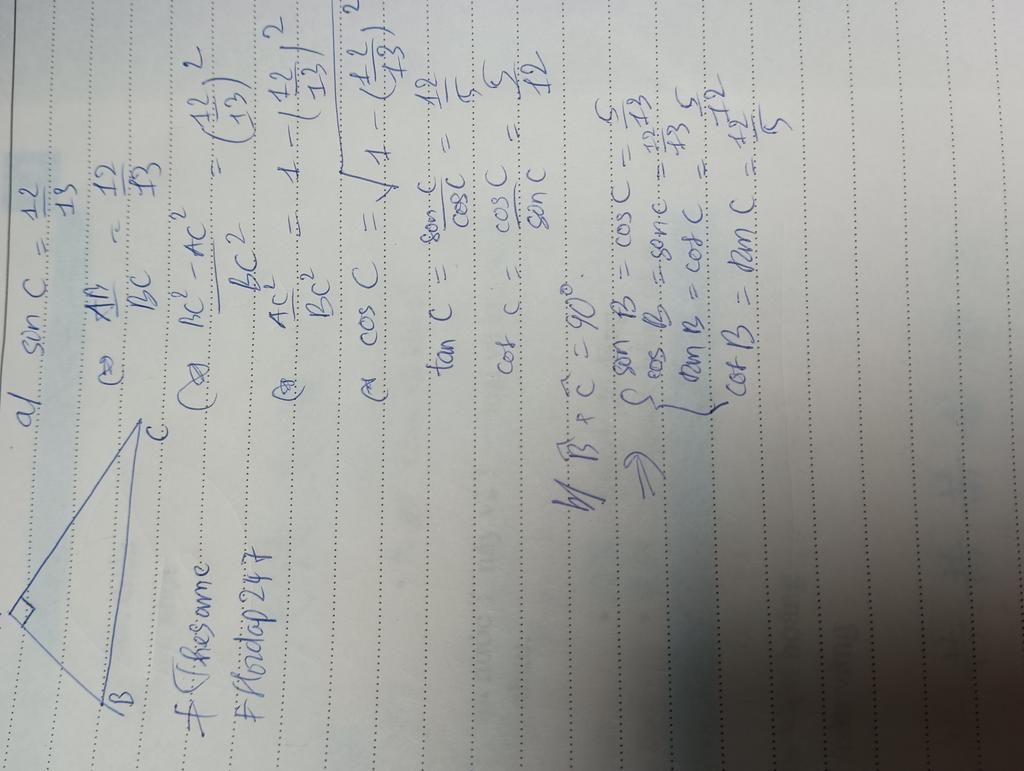 B
C
# Thesame
# Hoidap247
a/ sin C = 12/13
(⇔) AB/BC = 12/13
(⇔) (BC² - AC²)/BC² = (12/13)²
(⇔) AC²/BC² = 1 - (12/13)²
(⇔) cos C = √(1 - (12/13)²)
tan C = sin C/cos C = 12/5
cot C = cos C/sin C = 5/12
b/ B̂ + Ĉ = 90°
⇒ { sin B = cos C = 5/13
cos B = sin C = 12/13
tan B = cot C = 5/12
cot B = tan C = 12/5